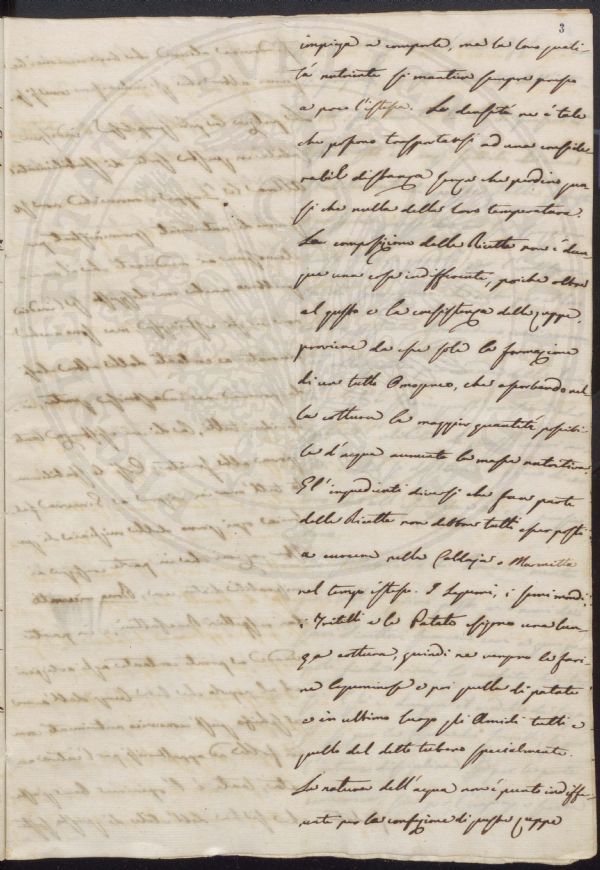 3
impieza e composte, ma la loro quali-
tá nutriente si mantien sempre presso
a poco l'istessa. La densitá ne é tale
che possono trasportarsi ad una conside-
rabile distanza senza che perdino qua-
si che nulla della loro temperatura.
La composizione delle Ricette non é dun-
que una cosa indifferente, poiche oltre
al gusto e la consistenza delle zuppe,
proviene da esse sole la formazione
di un tutto Omogeneo, che assorbendo nel-
la cottura la maggior quantitá possibi-
le d'acqua aumenta la massa nutritiva.
Gl'ingredienti diversi che fan parte
delle Ricette non debbon tutti esser posti
a cuocere nella Caldaja o Marmitta
nel tempo istesso. I Legumi, i semi mondi,
i Piselli e le Patate esigono una lun-
ga cottura, quindi ne vengono le fari-
ne leguminose e poi quelle di patate
e in ultimo luogo gli Amidi tutti e
quello del detto tubero specialmente.
La natura dell'acqua non é punto indiffe-
rente per la confezione di queste zuppe